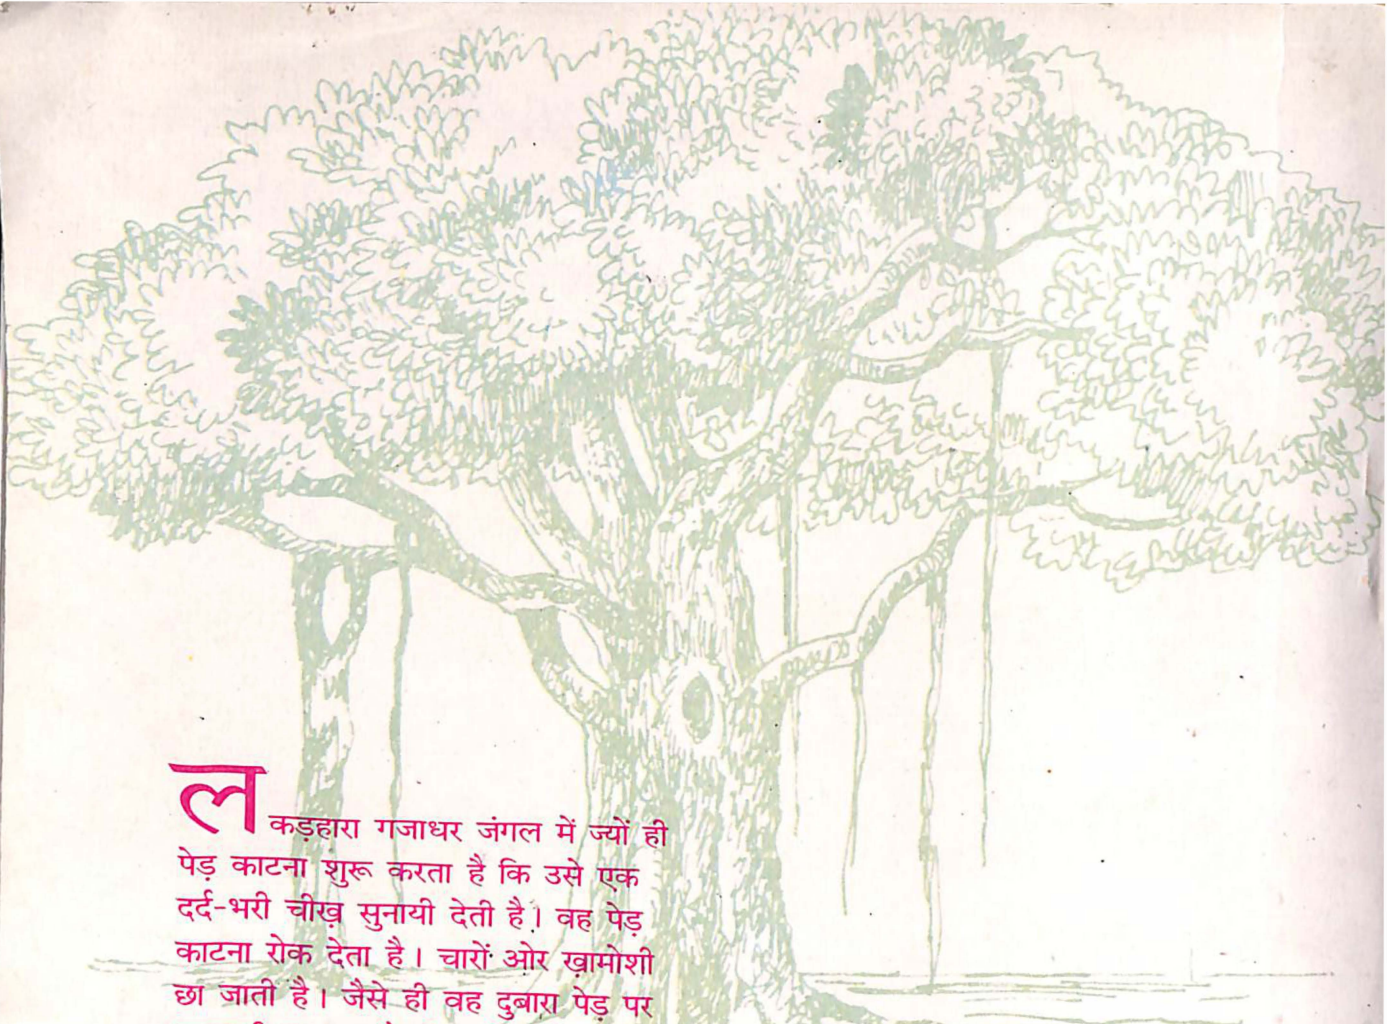 लकड़हारा गजाधर जंगल में ज्यों ही
पेड़ काटना शुरू करता है कि उसे एक
दर्द-भरी चीख़ सुनायी देती है। वह पेड़
काटना रोक देता है। चारों ओर ख़ामोशी
छा जाती है। जैसे ही वह दुबारा पेड़ पर